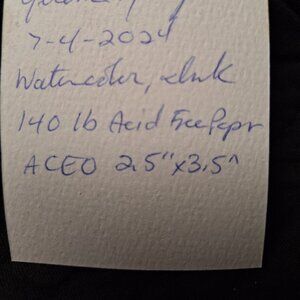 7-4-2024
Watercolor, Ink
140 lb Acid Free Papr
ACEO 2.5"x3.5"